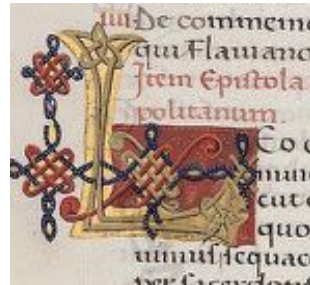 IIII De commem
qui Flauiano
Item Epistola
politanum.
LEO
cut
quo
uimus sequac
per sacerdot